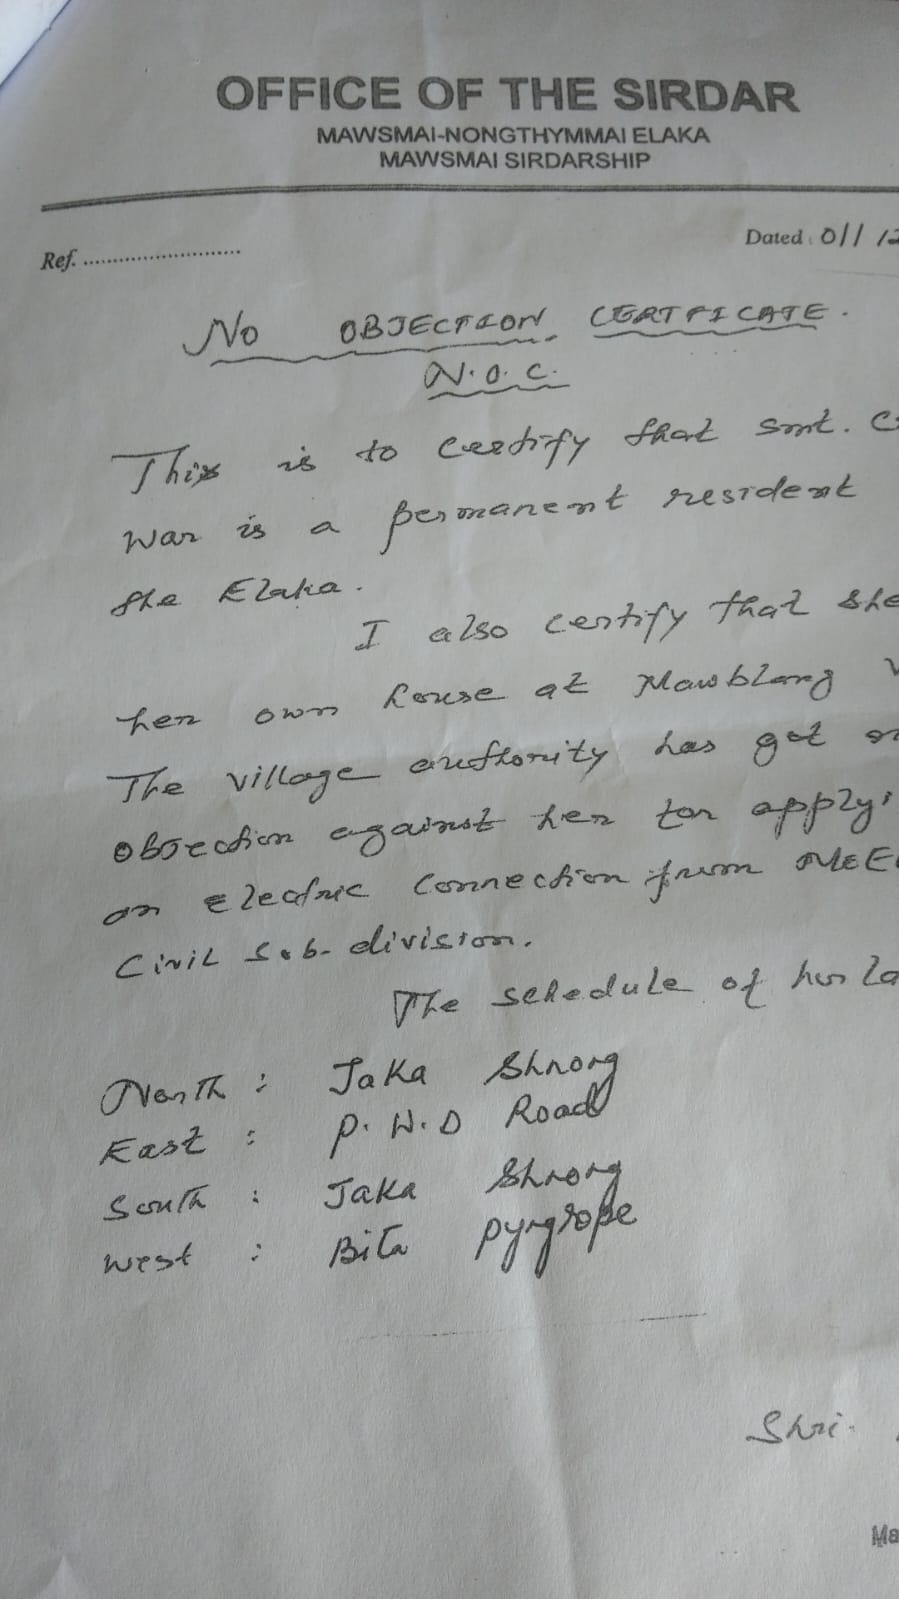 OFFICE OF THE SIRDAR
MAWSMAI-NONGTHYMMAI ELAKA
MAWSMAI SIRDARSHIP
Ref. ............................ Dated : 011 12
No OBJECTION CERTFICATE.
N.O.C.
This is to certify that smt. C
War is a permanent resident
the Elaka.
I also certify that she
her own house at Mawblang V
The village authority has got n
objection against her for applyi
an Electric Connection from MeEC
Civil Sub-division.
The schedule of her la
North : Jaka Shnong
East : P.W.D Road
South : Jaka Shnong
West : Bita Pyngrope
Shri.
Ma